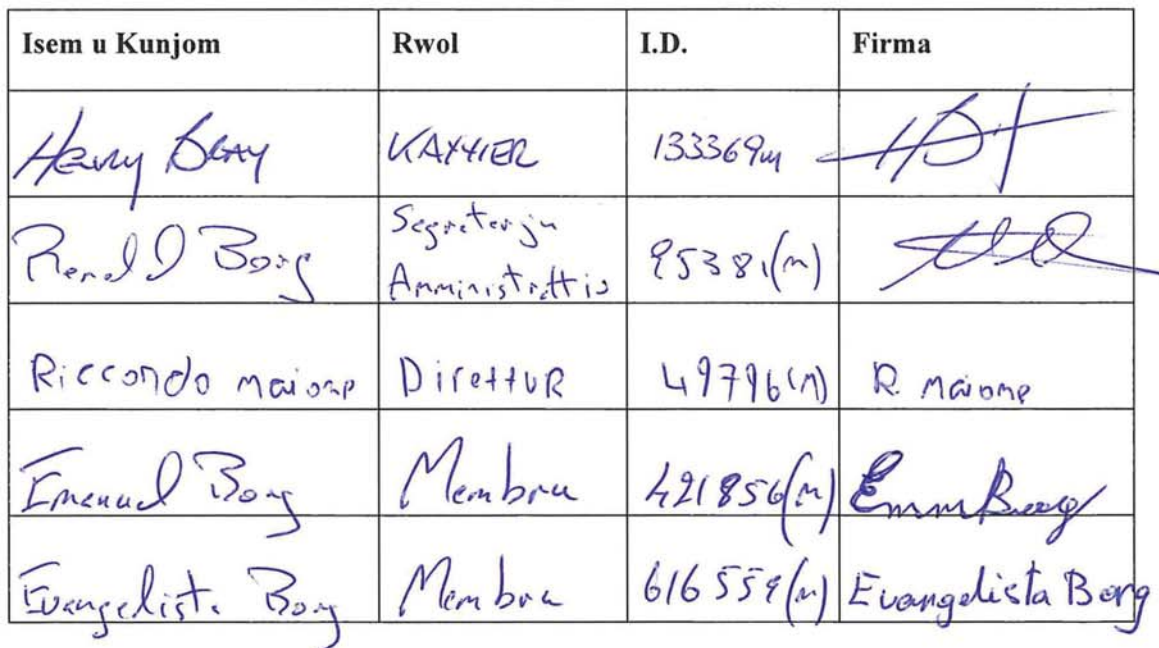 Isem u Kunjom Rwol I.D. Firma
Henry KAXXIER 133369m
Renald Borg Segretarju Amministrattiv 95381(m)
Riccondo maione DirettuR 49796(m) R. maione
Emanuel Borg Membru 421856(m) Emm Borg
Evangelista Borg Membru 616559(m) Evangelista Borg